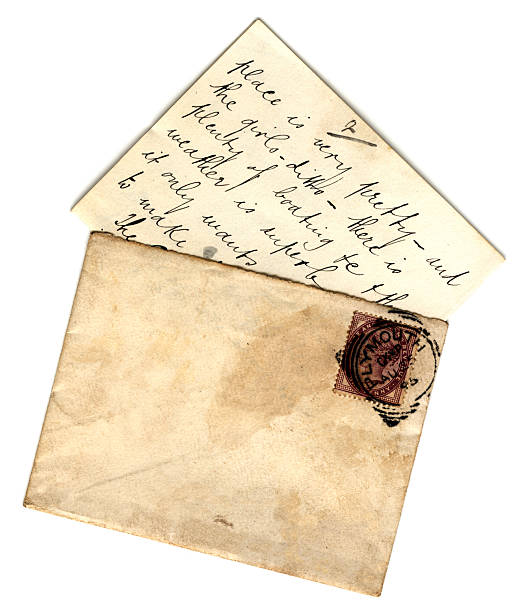 2
place is very pretty - and
the girls - ditto - there is
plenty of boating &c
weather is superb
it only wants
to make
The
PLYMOUTH
AU